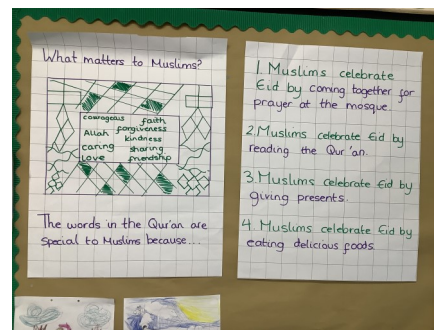 What matters to Muslims?
courageous faith
forgiveness
Allah kindness
caring sharing
love friendship
The words in the Qur'an are
special to Muslims because...
1. Muslims celebrate
Eid by coming together for
prayer at the mosque.
2. Muslims celebrate Eid by
reading the Qur'an.
3. Muslims celebrate Eid by
giving presents.
4. Muslims celebrate Eid by
eating delicious foods.